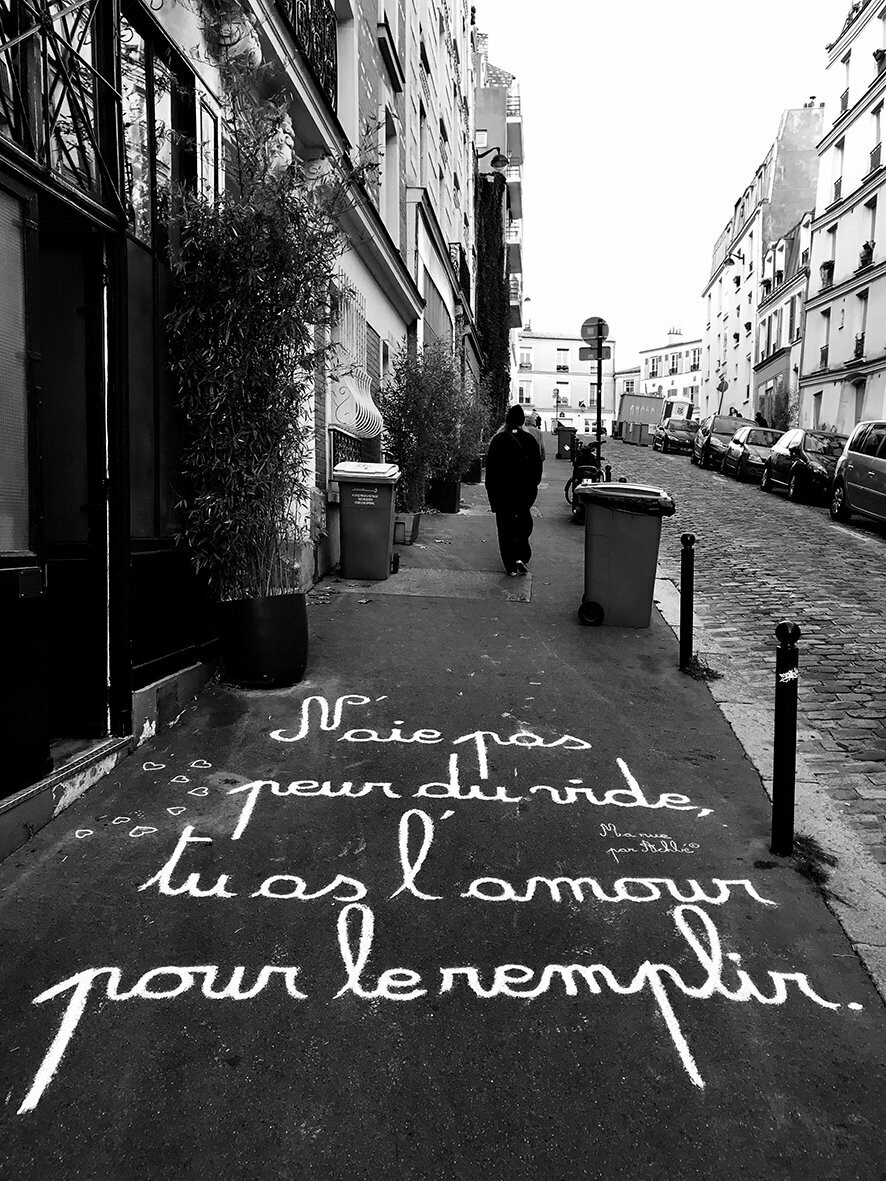 N'aie pas
peur du vide,
tu as l'amour
pour le remplir.
Ma rue
par Achbé